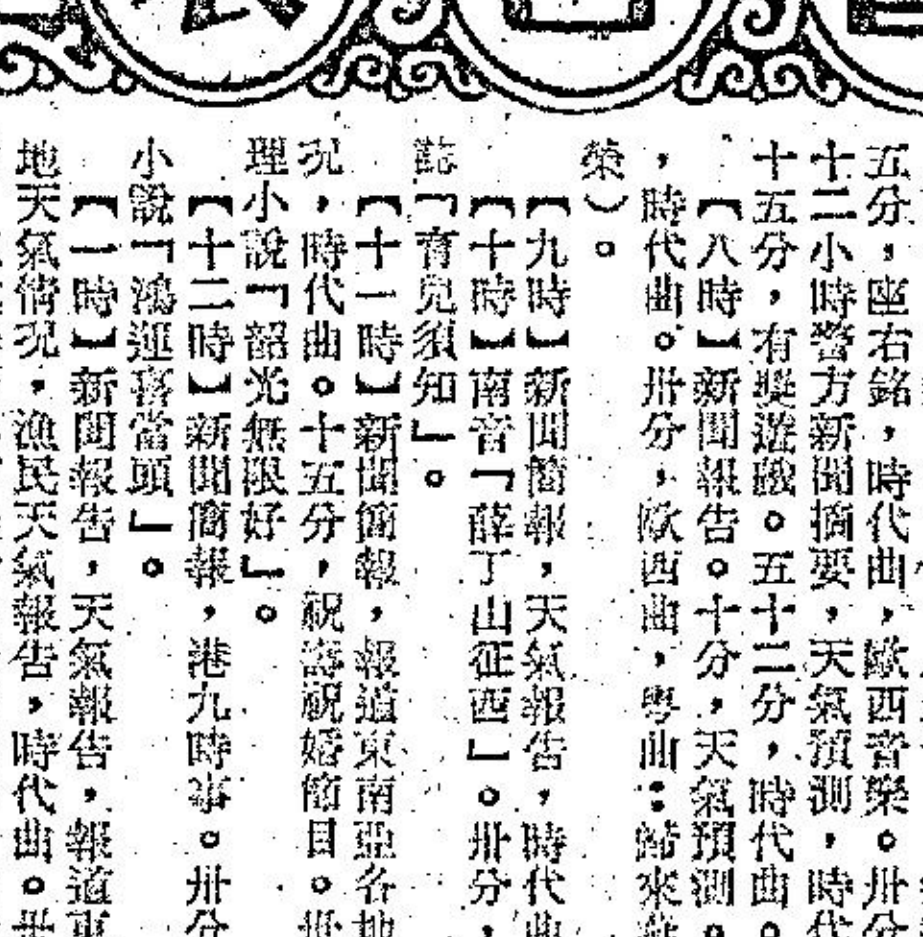 五分，座右銘，時代曲，歐西音樂。卅分
十二小時警方新聞摘要，天氣預測，時代
十五分，有獎遊戲。五十二分，時代曲。
【八時】新聞報告。十分，天氣預測。
，時代曲。卅分，歐西曲，粵曲：歸來燕
榮）。
【九時】新聞簡報，天氣報告，時代曲
【十時】南音「薛丁山征西」。卅分，
「育兒須知」。
【十一時】新聞簡報，報道東南亞各地
況，時代曲。十五分，祝壽祝婚節目。卅
理小說「韶光無限好」。
【十二時】新聞簡報，港九時事。卅分
小說「鴻運喜當頭」。
【一時】新聞報告，天氣報告，報道東
地天氣情況，漁民天氣報告，時代曲。卅